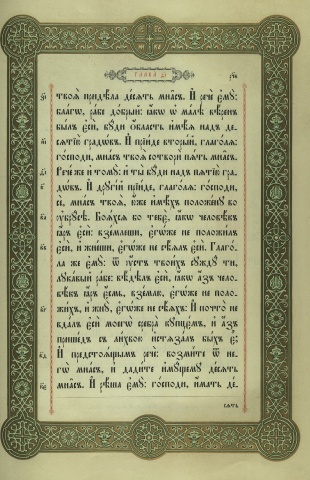 ГЛАВА Д҃І
твоѧ̀ придѣ́ла де́сѧть мна́съ. И҆ речѐ є҆мꙋ̀:
бла́гѡ, ра́бе до́брый: ꙗ҆́кѡ ѡ҆ ма́лѣ вѣ́ренъ
бы́лъ є҆сѝ, бꙋ́ди ѡ҆́бласть и҆мѣ́ѧ над̾ де-
сѧтїю̀ градѡ́въ. И҆ прїи́де вторы́й, глаго́лѧ:
го́споди, мна́съ твоѧ̀ сотворѝ пѧ́ть мна́съ.
Рече́ же и҆ томꙋ̀: и҆ ты̀ бꙋ́ди над̾ пѧтїю̀ гра-
дѡ́въ. И҆ дрꙋгі́й прїи́де, глаго́лѧ: го́споди,
сѐ, мна́съ твоѧ̀, ю҆́же и҆мѣ́хъ положе́нꙋ во
ᲂу҆брꙋ́сѣ. Боѧ́хсѧ бо тебє̀, ꙗ҆́кѡ человѣ́къ
ꙗ҆́ръ є҆сѝ: взе́млеши, є҆гѡ́же не положи́лъ
є҆сѝ, и҆ жне́ши, є҆гѡ́же не сѣ́ѧлъ є҆сѝ. Глаго́-
ла же є҆мꙋ̀: ѿ ᲂу҆́стъ твои́хъ сꙋждꙋ́ ти,
лꙋка́вый ра́бе: вѣ́дѣлъ є҆сѝ, ꙗ҆́кѡ а҆́зъ чело-
вѣ́къ ꙗ҆́ръ є҆́смь, взе́млю, є҆гѡ́же не поло-
жи́хъ, и҆ жнꙋ̀, є҆гѡ́же не сѣ́ѧхъ: И҆ почто̀ не
вда́лъ є҆сѝ моегѡ̀ сребра̀ кꙋпцє́мъ, и҆ а҆́зъ
прише́дъ съ ли́хвою и҆стѧза́лъ бы́хъ є҆̀;
И҆ предстоѧ́щымъ речѐ: возми́те ѿ не-
гѡ̀ мна́съ, и҆ дади́те и҆мꙋ́щемꙋ де́сѧть
мна́съ. И҆ рѣ́ша є҆мꙋ̀: го́споди, и҆́мать де́-
сѧть